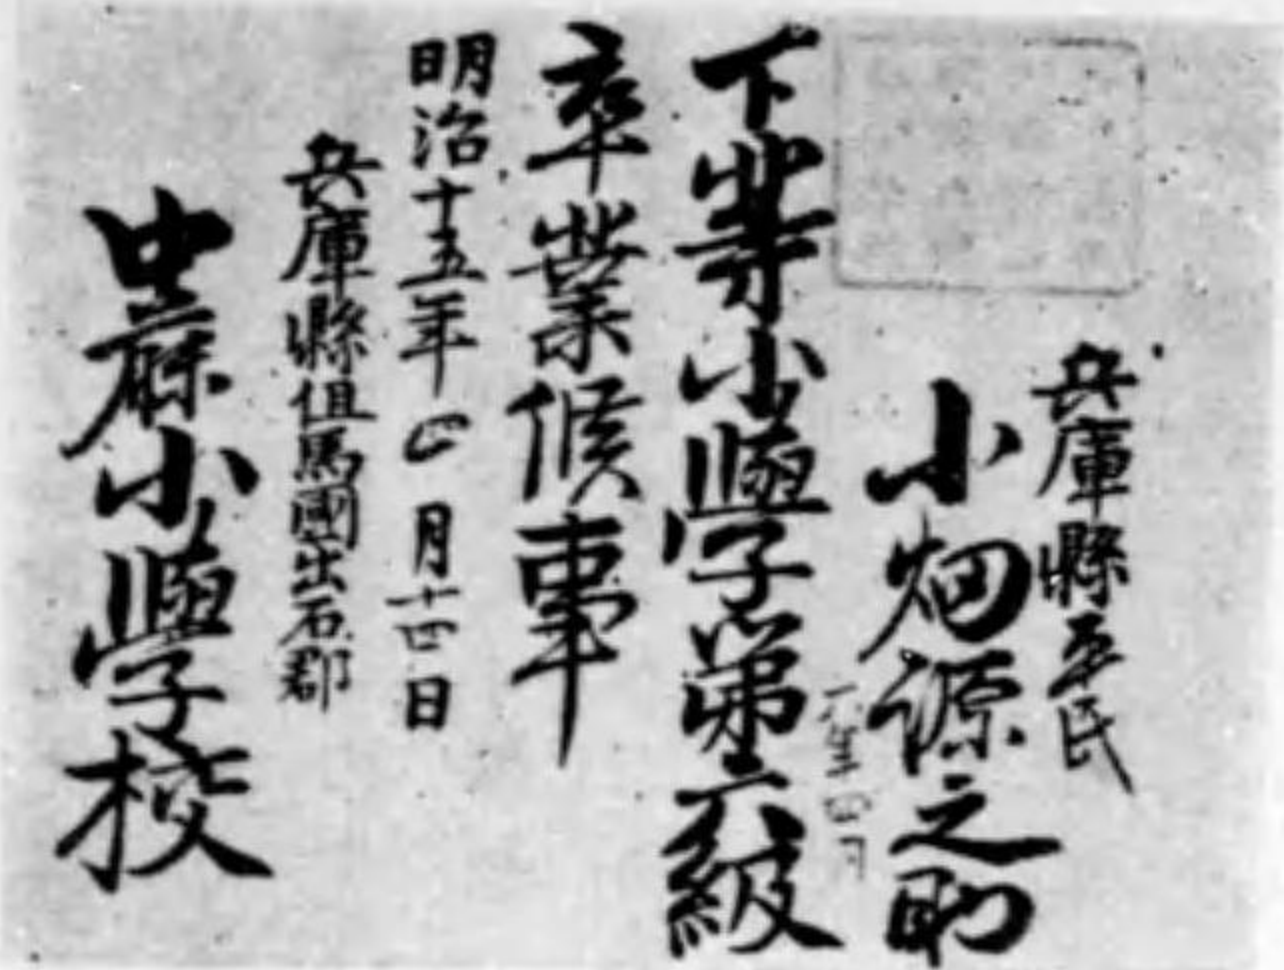 兵庫縣平民
小畑源之助
下等小學第六級
卒業候事
明治十五年四月十四日
兵庫縣但馬國出石郡
小學校